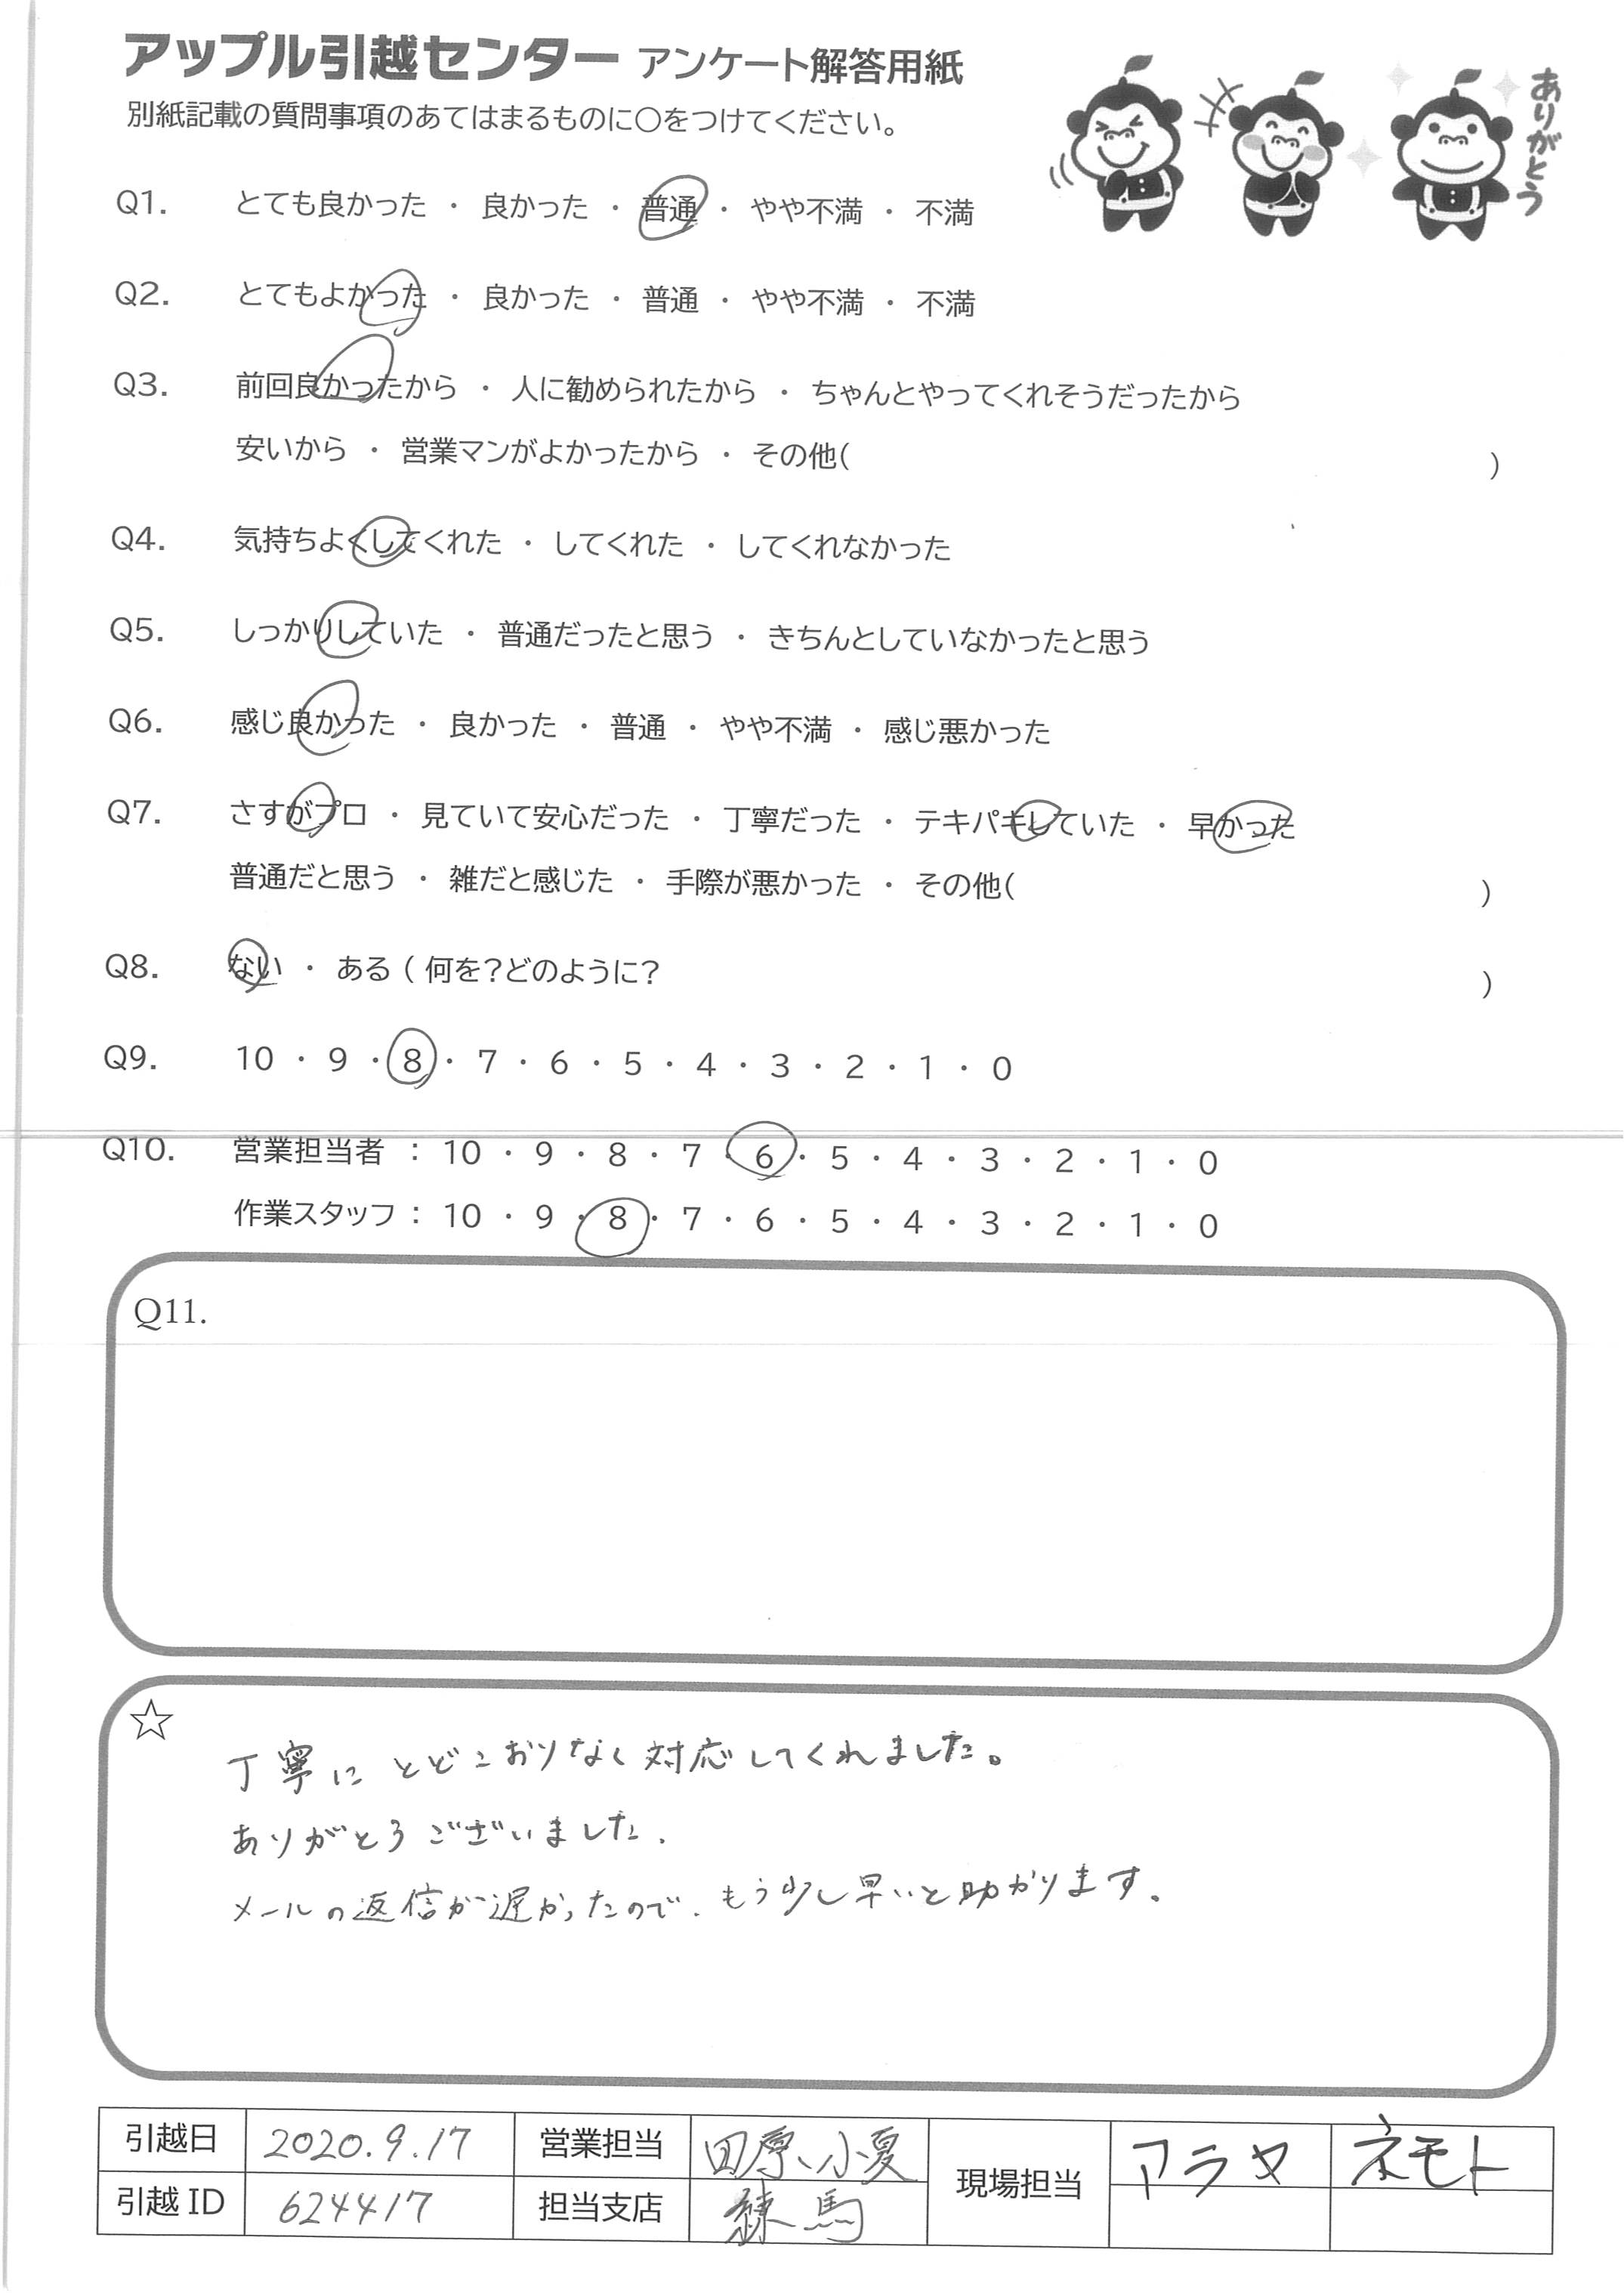 アップル引越センター アンケート解答用紙
別紙記載の質問事項のあてはまるものに○をつけてください。
ありがとう
Q1. とても良かった ・ 良かった ・ 普通 ・ やや不満 ・ 不満
Q2. とてもよかった ・ 良かった ・ 普通 ・ やや不満 ・ 不満
Q3. 前回良かったから ・ 人に勧められたから ・ ちゃんとやってくれそうだったから
安いから ・ 営業マンがよかったから ・ その他( )
Q4. 気持ちよくしてくれた ・ してくれた ・ してくれなかった
Q5. しっかりしていた ・ 普通だったと思う ・ きちんとしていなかったと思う
Q6. 感じ良かった ・ 良かった ・ 普通 ・ やや不満 ・ 感じ悪かった
Q7. さすがプロ ・ 見ていて安心だった ・ 丁寧だった ・ テキパキしていた ・ 早かった
普通だと思う ・ 雑だと感じた ・ 手際が悪かった ・ その他( )
Q8. ない ・ ある ( 何を?どのように? )
Q9. 10 ・ 9 ・ 8 ・ 7 ・ 6 ・ 5 ・ 4 ・ 3 ・ 2 ・ 1 ・ 0
Q10. 営業担当者 : 10 ・ 9 ・ 8 ・ 7 ・ 6 ・ 5 ・ 4 ・ 3 ・ 2 ・ 1 ・ 0
作業スタッフ : 10 ・ 9 ・ 8 ・ 7 ・ 6 ・ 5 ・ 4 ・ 3 ・ 2 ・ 1 ・ 0
Q11.
☆
丁寧にとどこおりなく対応してくれました。
ありがとうございました.
メールの返信が遅かったので、もう少し早いと助かります。
引越日 2020.9.17 営業担当 田原、小夏 現場担当 アラヤ ネモト
引越ID 624417 担当支店 練馬